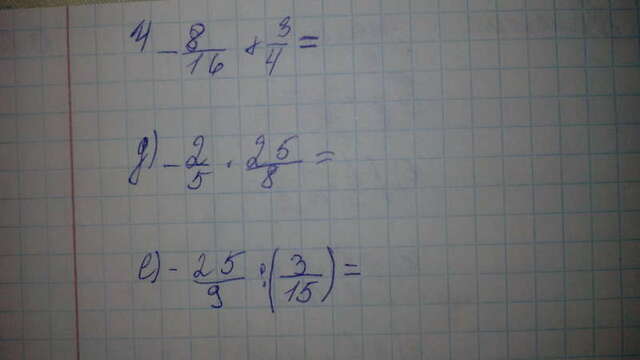 Ч -8/16 + 3/4 =
д) -2/5 · 25/8 =
е) -25/9 : (3/15) =